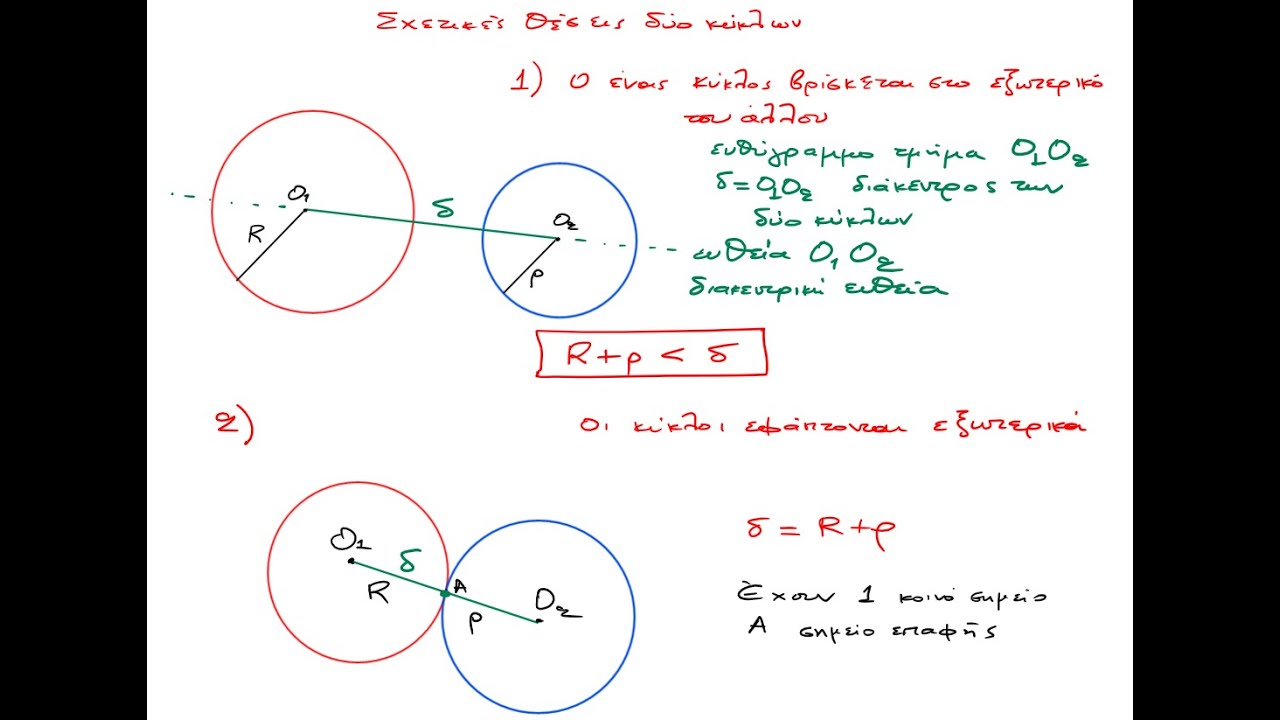 Σχετικές θέσεις δύο κύκλων
1) Ο ένας κύκλος βρίσκεται στο εξωτερικό
του άλλου
ευθύγραμμο τμήμα O₁O₂
δ = O₁O₂ διάκεντρος των
δύο κύκλων
ευθεία O₁O₂
διακεντρική ευθεία
O₁
δ
O₂
R
ρ
R+ρ < δ
2) Οι κύκλοι εφάπτονται εξωτερικά
O₁
δ
R
A
ρ
O₂
δ = R+ρ
Έχουν 1 κοινό σημείο
A σημείο επαφής